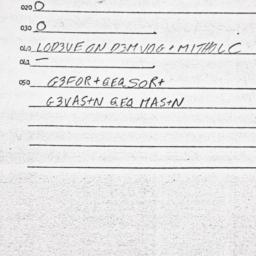 020 O
030 O
040 LOD3VE GN D3M VOG + MITHILC
041 —
050 G3FOR+GEQSOR+
G3VAS+N GEQ MAS+N